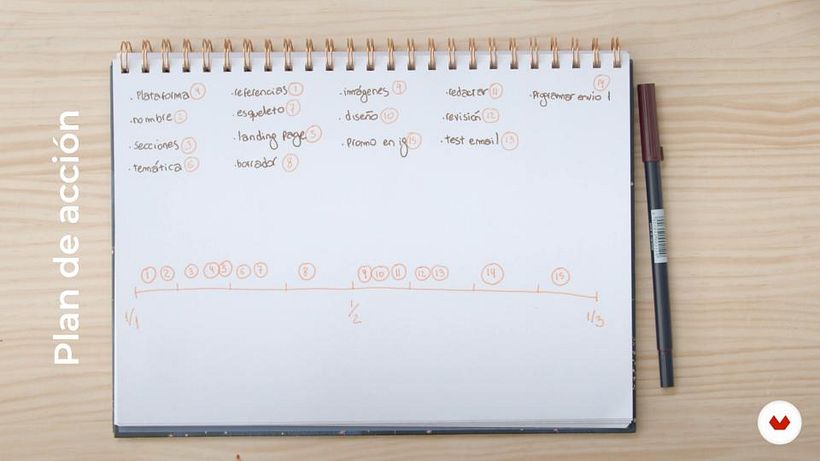 Plan de acción
. Plataforma 4
. nombre 2
. secciones 3
. temática 6
. referencias 1
. esqueleto 7
. landing page 5
. borrador 8
. imágenes 9
. diseño 10
. promo en ig 15
. redactar 11
. revisión 12
. test email 13
. Programar envío 1 14
1 2 3 4 5 6 7 8 9 10 11 12 13 14 15
1/1 1/2 1/3